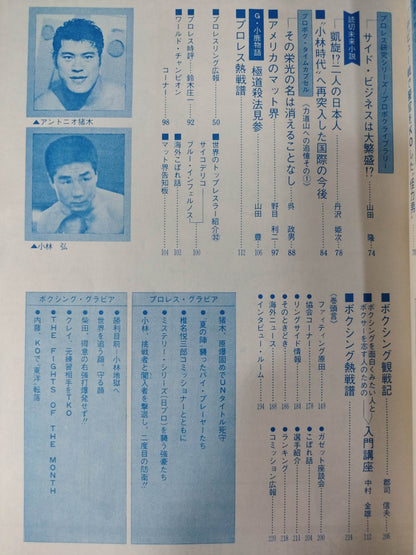 プロレス研究シリーズ/プロボクライブラリー
サイド・ビジネスは大繁盛!?
山田 隆
74
読切未来小説
凱旋!?二人の日本人
丹沢 姫次
78
"小林時代"へ再突入した国際の今後
84
プロボク・タイムカプセル (力道山への追憶その①)
その栄光の名は消えることなし
呉 政男
88
アメリカのマット界
野目 利二
97
G・小鹿物語
極道殺法見参
山田 豊
106
プロレス熱戦譜
112
プロレスリング広報
50
プロレス時評
鈴木庄一
92
ワールド・チャンピオン
コーナー
98
世界のトップレスラー紹介㉜
サイコデリコ
ブルー・インフェルノス
100
海外こぼれ話
102
マット界告知板
104
▲アントニオ猪木
▲小林 弘
■ボクシング観戦記
郡司 信夫
206
ボクシングを面白くみたい人と
ボクサーを志す人のための
入門講座
中村 金雄
212
■ボクシング熱戦譜
224
(巻頭言)
ファイティング原田
149
協会コーナー
178
リングサイド情報
184
そのときどき
186
海外ニュース
188
インタビュー・ルーム
194
ガゼット座談会
200
こぼれ話
204
選手紹介
211
ランキング
218
コミッション広報
220
プロレス・グラビア
猪木、原爆固めでUNタイトル死守
"夏の陣"闘ったバイ・プレーヤーたち
椎名悦三郎コミッショナーとともに
ミステリー・シリーズ(日プロ)を襲う強豪たち
小林、挑戦者と闖入者を撃退し、二度目の防衛!!
ボクシング・グラビア
勝利目前!小林地獄へ
世界を追う龍・守る龍
柴田、得意の右強打爆発せず!!
クレイ、元練習相手をTKO
THE FIGHTS OF THE MONTH
内藤、KOで"東洋"転落